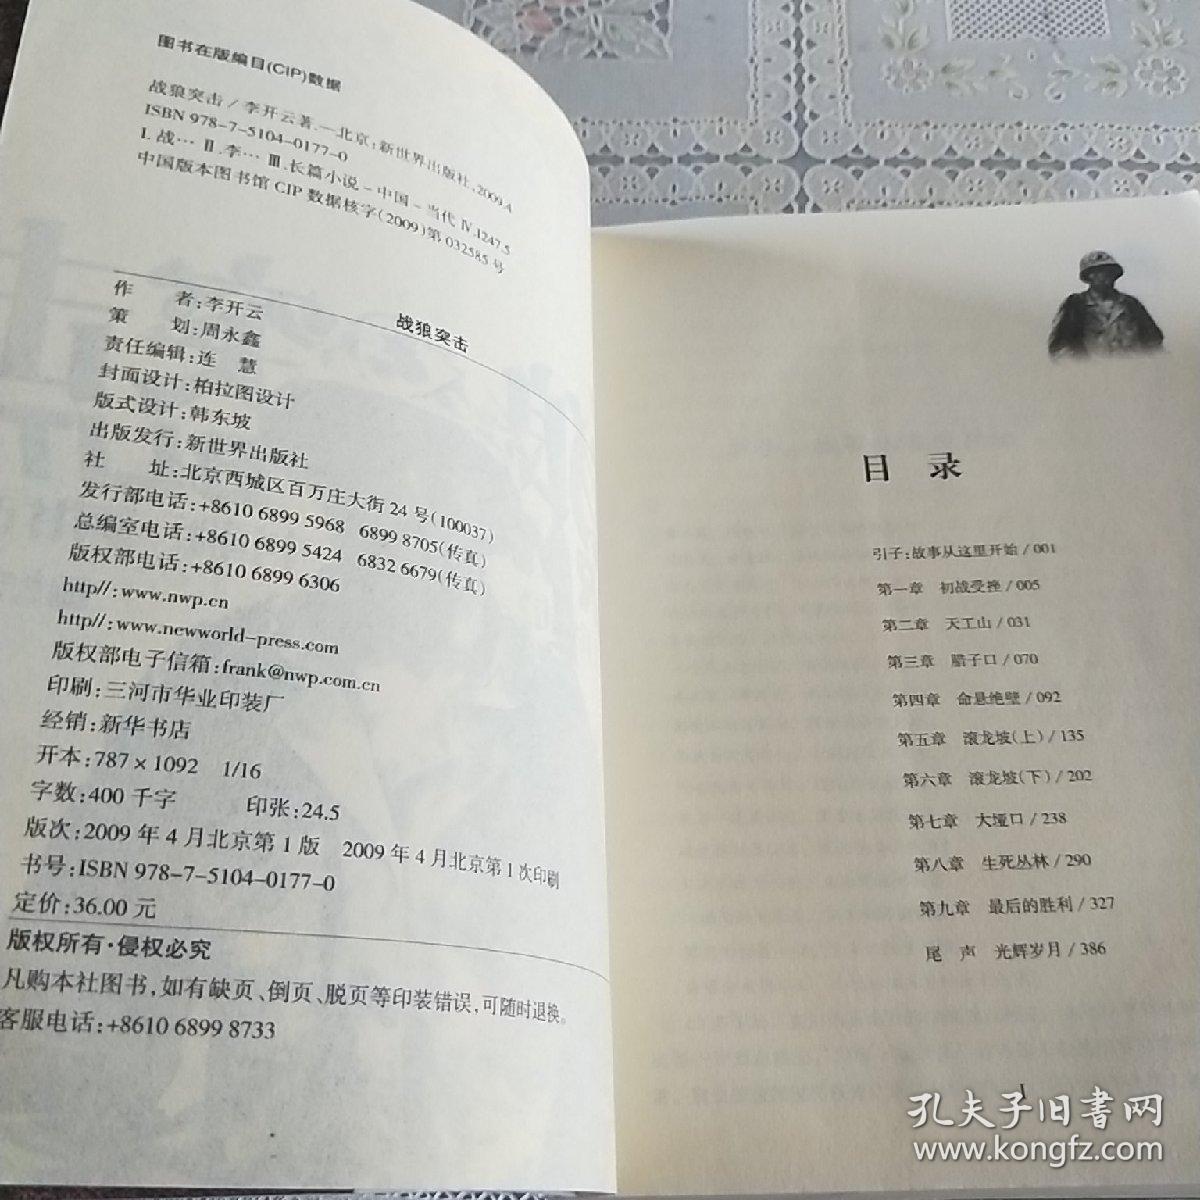 图书在版编目(CIP)数据
战狼突击/李开云著.—北京:新世界出版社,2009.4
ISBN 978-7-5104-0177-0
Ⅰ.战… Ⅱ.李… Ⅲ.长篇小说-中国-当代 Ⅳ.I247.5
中国版本图书馆CIP数据核字(2009)第032585号
战狼突击
作 者:李开云
策 划:周永鑫
责任编辑:连 慧
封面设计:柏拉图设计
版式设计:韩东坡
出版发行:新世界出版社
社 址:北京西城区百万庄大街24号(100037)
发行部电话:+8610 6899 5968 6899 8705(传真)
总编室电话:+8610 6899 5424 6832 6679(传真)
版权部电话:+8610 6899 6306
http//:www.nwp.cn
http//:www.newworld-press.com
版权部电子信箱:frank@nwp.com.cn
印刷:三河市华业印装厂
经销:新华书店
开本:787×1092 1/16
字数:400千字 印张:24.5
版次:2009年4月北京第1版 2009年4月北京第1次印刷
书号:ISBN 978-7-5104-0177-0
定价:36.00元
版权所有·侵权必究
凡购本社图书,如有缺页、倒页、脱页等印装错误,可随时退换。
客服电话:+8610 6899 8733
目 录
引子:故事从这里开始/001
第一章 初战受挫/005
第二章 天工山/031
第三章 腊子口/070
第四章 命悬绝壁/092
第五章 滚龙坡(上)/135
第六章 滚龙坡(下)/202
第七章 大垭口/238
第八章 生死丛林/290
第九章 最后的胜利/327
尾 声 光辉岁月/386
1
孔夫子旧书网
www.kongfz.com